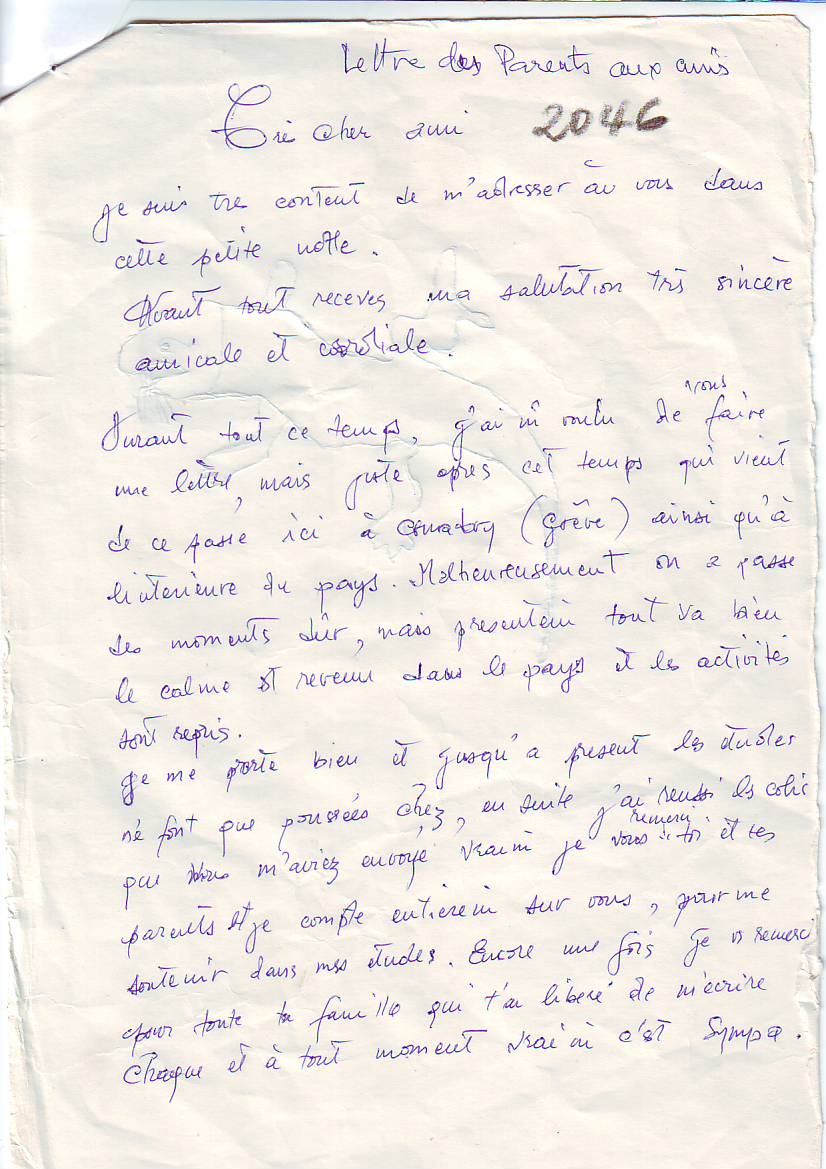 Lettre des Parents aux amis
Très cher ami 2046
je suis tre content de m'adresser àu vous dans
cette petite notte.
Avant tout receves ma salutation très sincère
amicale et cordiale.
Durant tout ce temps, j'ai voulu de vous faire
une lettre, mais juste apres cet temps qui vient
de ce passe ici à (Grève) ainsi qu'à
l'interieure du pays. Malheureusement on a passe
des moments dûr, mais presentem̄ tout va bien
le calme est revenu dans le pays et les activités
sont repris.
je me porte bien et jusqu'a present les études
ne font que poussées chez, en suite j'ai reussi les colis
que vous m'aviez envoyé vraim̄ je vous remerci toi et tes
parents et je compte entierem̄ sur vous, pour me
soutenir dans mes études. Encore une fois je vs remerci
pour toute ta famille qui t'a liberé de m'écrire
chaque et à tout moment vraim̄ c'est Sympa.